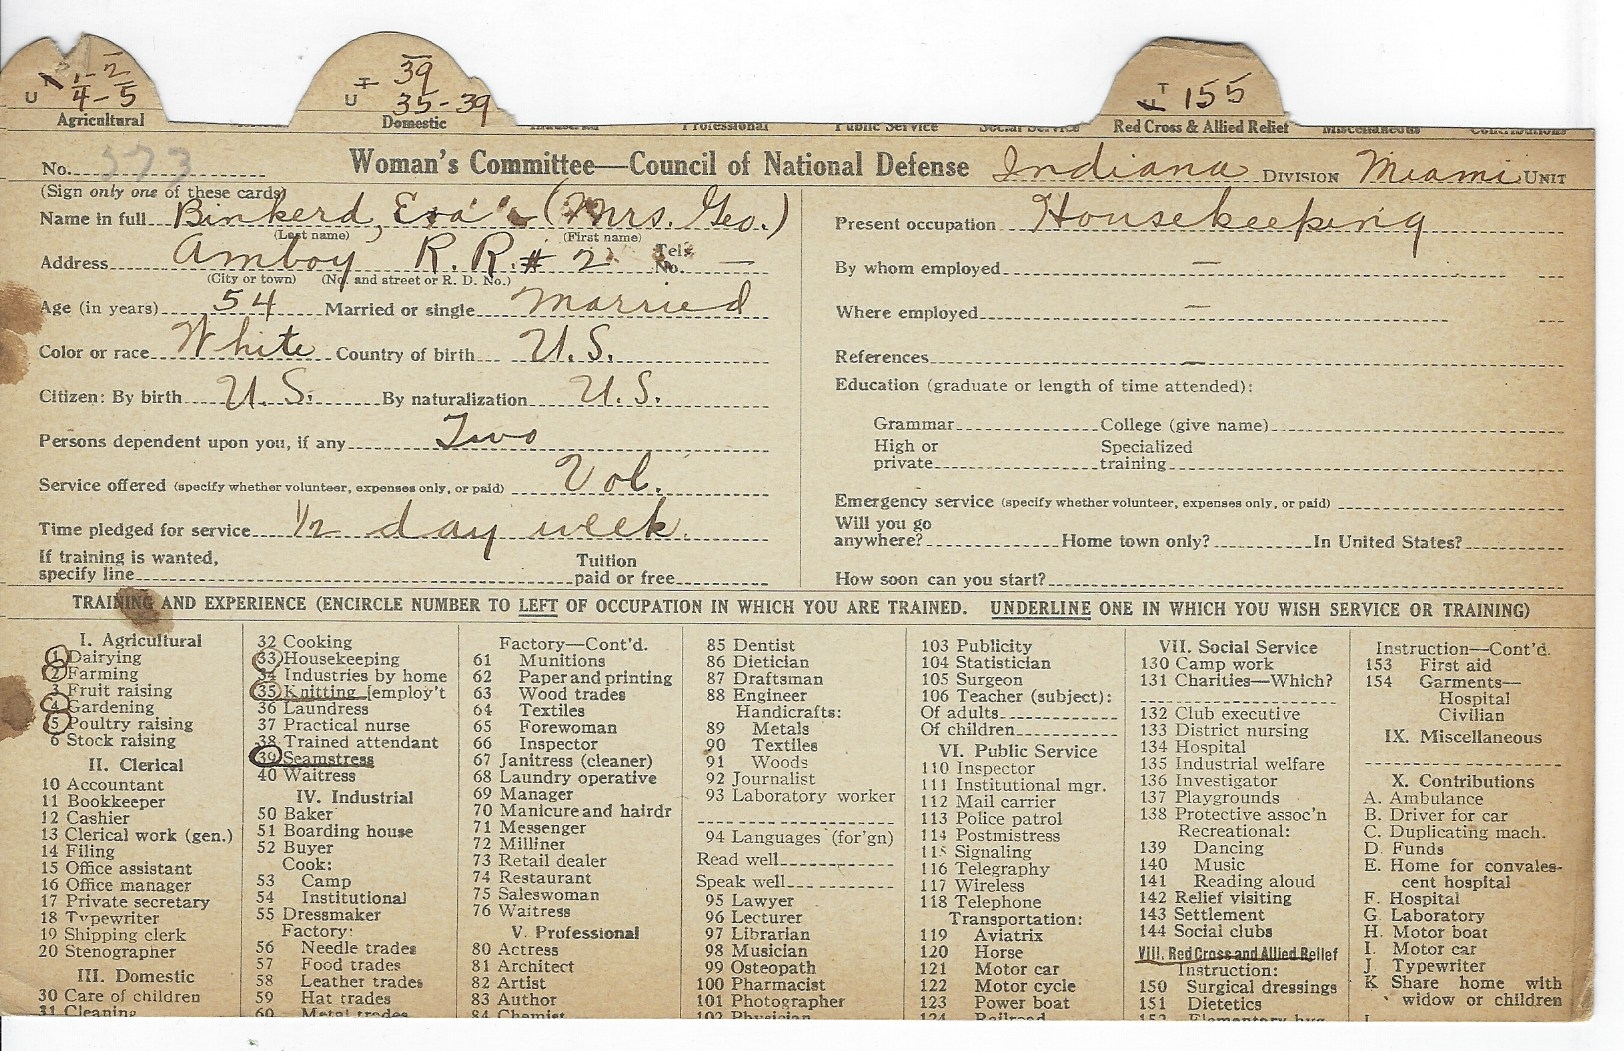 U 1-2
4-5
Agricultural
T 39
U 35-39
Domestic
Professional
Public Service
Social Service
T
U 155
Red Cross & Allied Relief
Miscellaneous
Contributions
No. 573 Woman's Committee—Council of National Defense Indiana DIVISION Miami UNIT
(Sign only one of these cards)
Name in full Binkerd, Eva (Mrs. Geo.)
(Last name) (First name)
Address Amboy R. R. # 2 Tel. No. —
(City or town) (No. and street or R. D. No.)
Age (in years) 54 Married or single Married
Color or race White Country of birth U.S.
Citizen: By birth U.S. By naturalization U.S.
Persons dependent upon you, if any Two
Service offered (specify whether volunteer, expenses only, or paid) Vol.
Time pledged for service 1/2 day week.
If training is wanted,
specify line Tuition
paid or free
Present occupation Housekeeping
By whom employed —
Where employed —
References —
Education (graduate or length of time attended):
Grammar College (give name)
High or
private Specialized
training
Emergency service (specify whether volunteer, expenses only, or paid)
Will you go
anywhere? Home town only? In United States?
How soon can you start?
TRAINING AND EXPERIENCE (ENCIRCLE NUMBER TO LEFT OF OCCUPATION IN WHICH YOU ARE TRAINED. UNDERLINE ONE IN WHICH YOU WISH SERVICE OR TRAINING)
I. Agricultural
1 Dairying
2 Farming
3 Fruit raising
4 Gardening
5 Poultry raising
6 Stock raising
II. Clerical
10 Accountant
11 Bookkeeper
12 Cashier
13 Clerical work (gen.)
14 Filing
15 Office assistant
16 Office manager
17 Private secretary
18 Typewriter
19 Shipping clerk
20 Stenographer
III. Domestic
30 Care of children
31 Cleaning
32 Cooking
33 Housekeeping
34 Industries by home
35 Knitting [employ't
36 Laundress
37 Practical nurse
38 Trained attendant
39 Seamstress
40 Waitress
IV. Industrial
50 Baker
51 Boarding house
52 Buyer
Cook:
53 Camp
54 Institutional
55 Dressmaker
Factory:
56 Needle trades
57 Food trades
58 Leather trades
59 Hat trades
60 Metal trades
Factory—Cont'd.
61 Munitions
62 Paper and printing
63 Wood trades
64 Textiles
65 Forewoman
66 Inspector
67 Janitress (cleaner)
68 Laundry operative
69 Manager
70 Manicure and hairdr
71 Messenger
72 Milliner
73 Retail dealer
74 Restaurant
75 Saleswoman
76 Waitress
V. Professional
80 Actress
81 Architect
82 Artist
83 Author
84 Chemist
85 Dentist
86 Dietician
87 Draftsman
88 Engineer
Handicrafts:
89 Metals
90 Textiles
91 Woods
92 Journalist
93 Laboratory worker
94 Languages (for'gn)
Read well
Speak well
95 Lawyer
96 Lecturer
97 Librarian
98 Musician
99 Osteopath
100 Pharmacist
101 Photographer
102 Physician
103 Publicity
104 Statistician
105 Surgeon
106 Teacher (subject):
Of adults
Of children
VI. Public Service
110 Inspector
111 Institutional mgr.
112 Mail carrier
113 Police patrol
114 Postmistress
115 Signaling
116 Telegraphy
117 Wireless
118 Telephone
Transportation:
119 Aviatrix
120 Horse
121 Motor car
122 Motor cycle
123 Power boat
124 Railroad
VII. Social Service
130 Camp work
131 Charities—Which?
132 Club executive
133 District nursing
134 Hospital
135 Industrial welfare
136 Investigator
137 Playgrounds
138 Protective assoc'n
Recreational:
139 Dancing
140 Music
141 Reading aloud
142 Relief visiting
143 Settlement
144 Social clubs
VIII. Red Cross and Allied Relief
Instruction:
150 Surgical dressings
151 Dietetics
152 Elementary hyg.
Instruction—Cont'd.
153 First aid
154 Garments—
Hospital
Civilian
IX. Miscellaneous
X. Contributions
A. Ambulance
B. Driver for car
C. Duplicating mach.
D. Funds
E. Home for convales-
cent hospital
F. Hospital
G. Laboratory
H. Motor boat
I. Motor car
J. Typewriter
K Share home with
widow or children